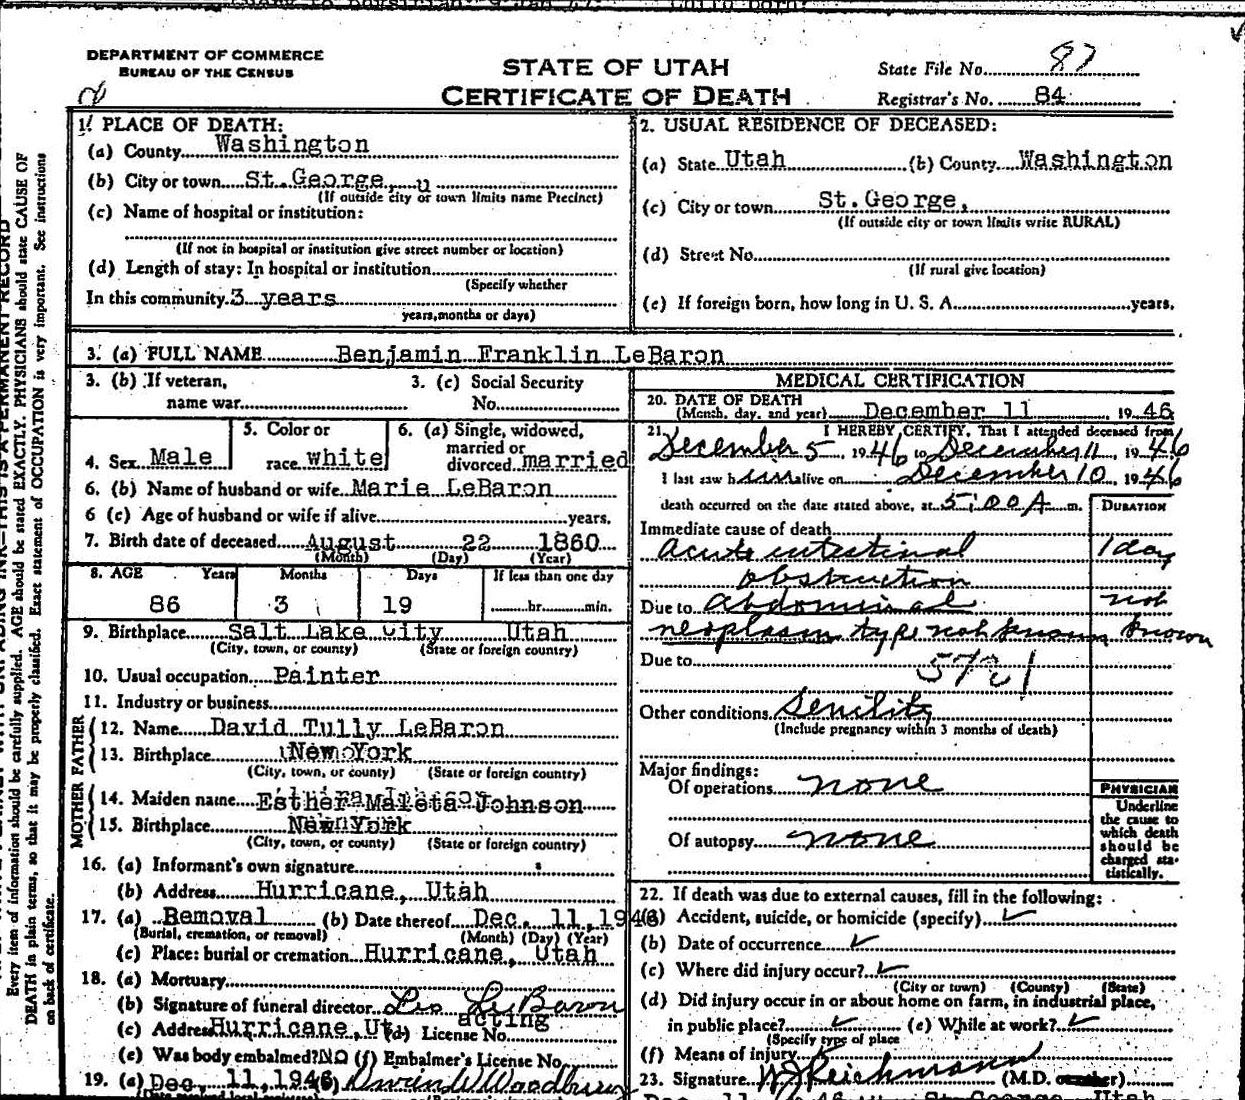 DEPARTMENT OF COMMERCE
BUREAU OF THE CENSUS
STATE OF UTAH
CERTIFICATE OF DEATH
State File No. 87
Registrar's No. 84
1. PLACE OF DEATH:
(a) County Washington
(b) City or town St. George, u
(If outside city or town limits name Precinct)
(c) Name of hospital or institution:
(If not in hospital or institution give street number or location)
(d) Length of stay: In hospital or institution
(Specify whether
In this community 3 years
years, months or days)
2. USUAL RESIDENCE OF DECEASED:
(a) State Utah (b) County Washington
(c) City or town St. George,
(If outside city or town limits write RURAL)
(d) Street No.
(If rural give location)
(e) If foreign born, how long in U. S. A. years.
3. (a) FULL NAME Benjamin Franklin LeBaron
3. (b) If veteran, name war
3. (c) Social Security No.
4. Sex Male
5. Color or race white
6. (a) Single, widowed, married or divorced married
6. (b) Name of husband or wife Marie LeBaron
6 (c) Age of husband or wife if alive years.
7. Birth date of deceased August 22 1860
(Month) (Day) (Year)
8. AGE Years Months Days If less than one day
86 3 19 hr. min.
9. Birthplace Salt Lake City Utah
(City, town, or county) (State or foreign country)
10. Usual occupation Painter
11. Industry or business
FATHER
12. Name David Tully LeBaron
13. Birthplace New York
(City, town, or county) (State or foreign country)
MOTHER
14. Maiden name Esther Johnson
15. Birthplace New York
(City, town, or county) (State or foreign country)
16. (a) Informant's own signature
(b) Address Hurricane, Utah
17. (a) Removal (b) Date thereof Dec. 11, 1946
(Burial, cremation, or removal) (Month) (Day) (Year)
(c) Place: burial or cremation Hurricane, Utah
18. (a) Mortuary
(b) Signature of funeral director Leo LeBaron
acting
(c) Address Hurricane, Ut. (d) License No.
(e) Was body embalmed? No (f) Embalmer's License No.
19. (a) Dec. 11, 1946 (b)
MEDICAL CERTIFICATION
20. DATE OF DEATH
(Month, day, and year) December 11, 1946
21. I HEREBY CERTIFY, That I attended deceased from
December 5, 1946 to December 11, 1946
I last saw him alive on December 10, 1946
death occurred on the date stated above, at 5:00 A. m.
DURATION
Immediate cause of death
Acute intestinal 1 day
obstruction
Due to Abdominal not
neoplasm type not known known
Due to
Other conditions Senility
(Include pregnancy within 3 months of death)
Major findings:
Of operations none
Of autopsy none
PHYSICIAN
Underline
the cause to
which death
should be
charged sta-
tistically.
22. If death was due to external causes, fill in the following:
(a) Accident, suicide, or homicide (specify) ✓
(b) Date of occurrence ✓
(c) Where did injury occur? ✓
(City or town) (County) (State)
(d) Did injury occur in or about home on farm, in industrial place,
in public place? ✓ (e) While at work? ✓
(Specify type of place
(f) Means of injury
23. Signature Reichmann (M.D.
Every item of information should be carefully supplied. AGE should be stated EXACTLY. PHYSICIANS should state CAUSE OF
DEATH in plain terms, so that it may be properly classified. Exact statement of OCCUPATION is very important. See instructions
on back of certificate.